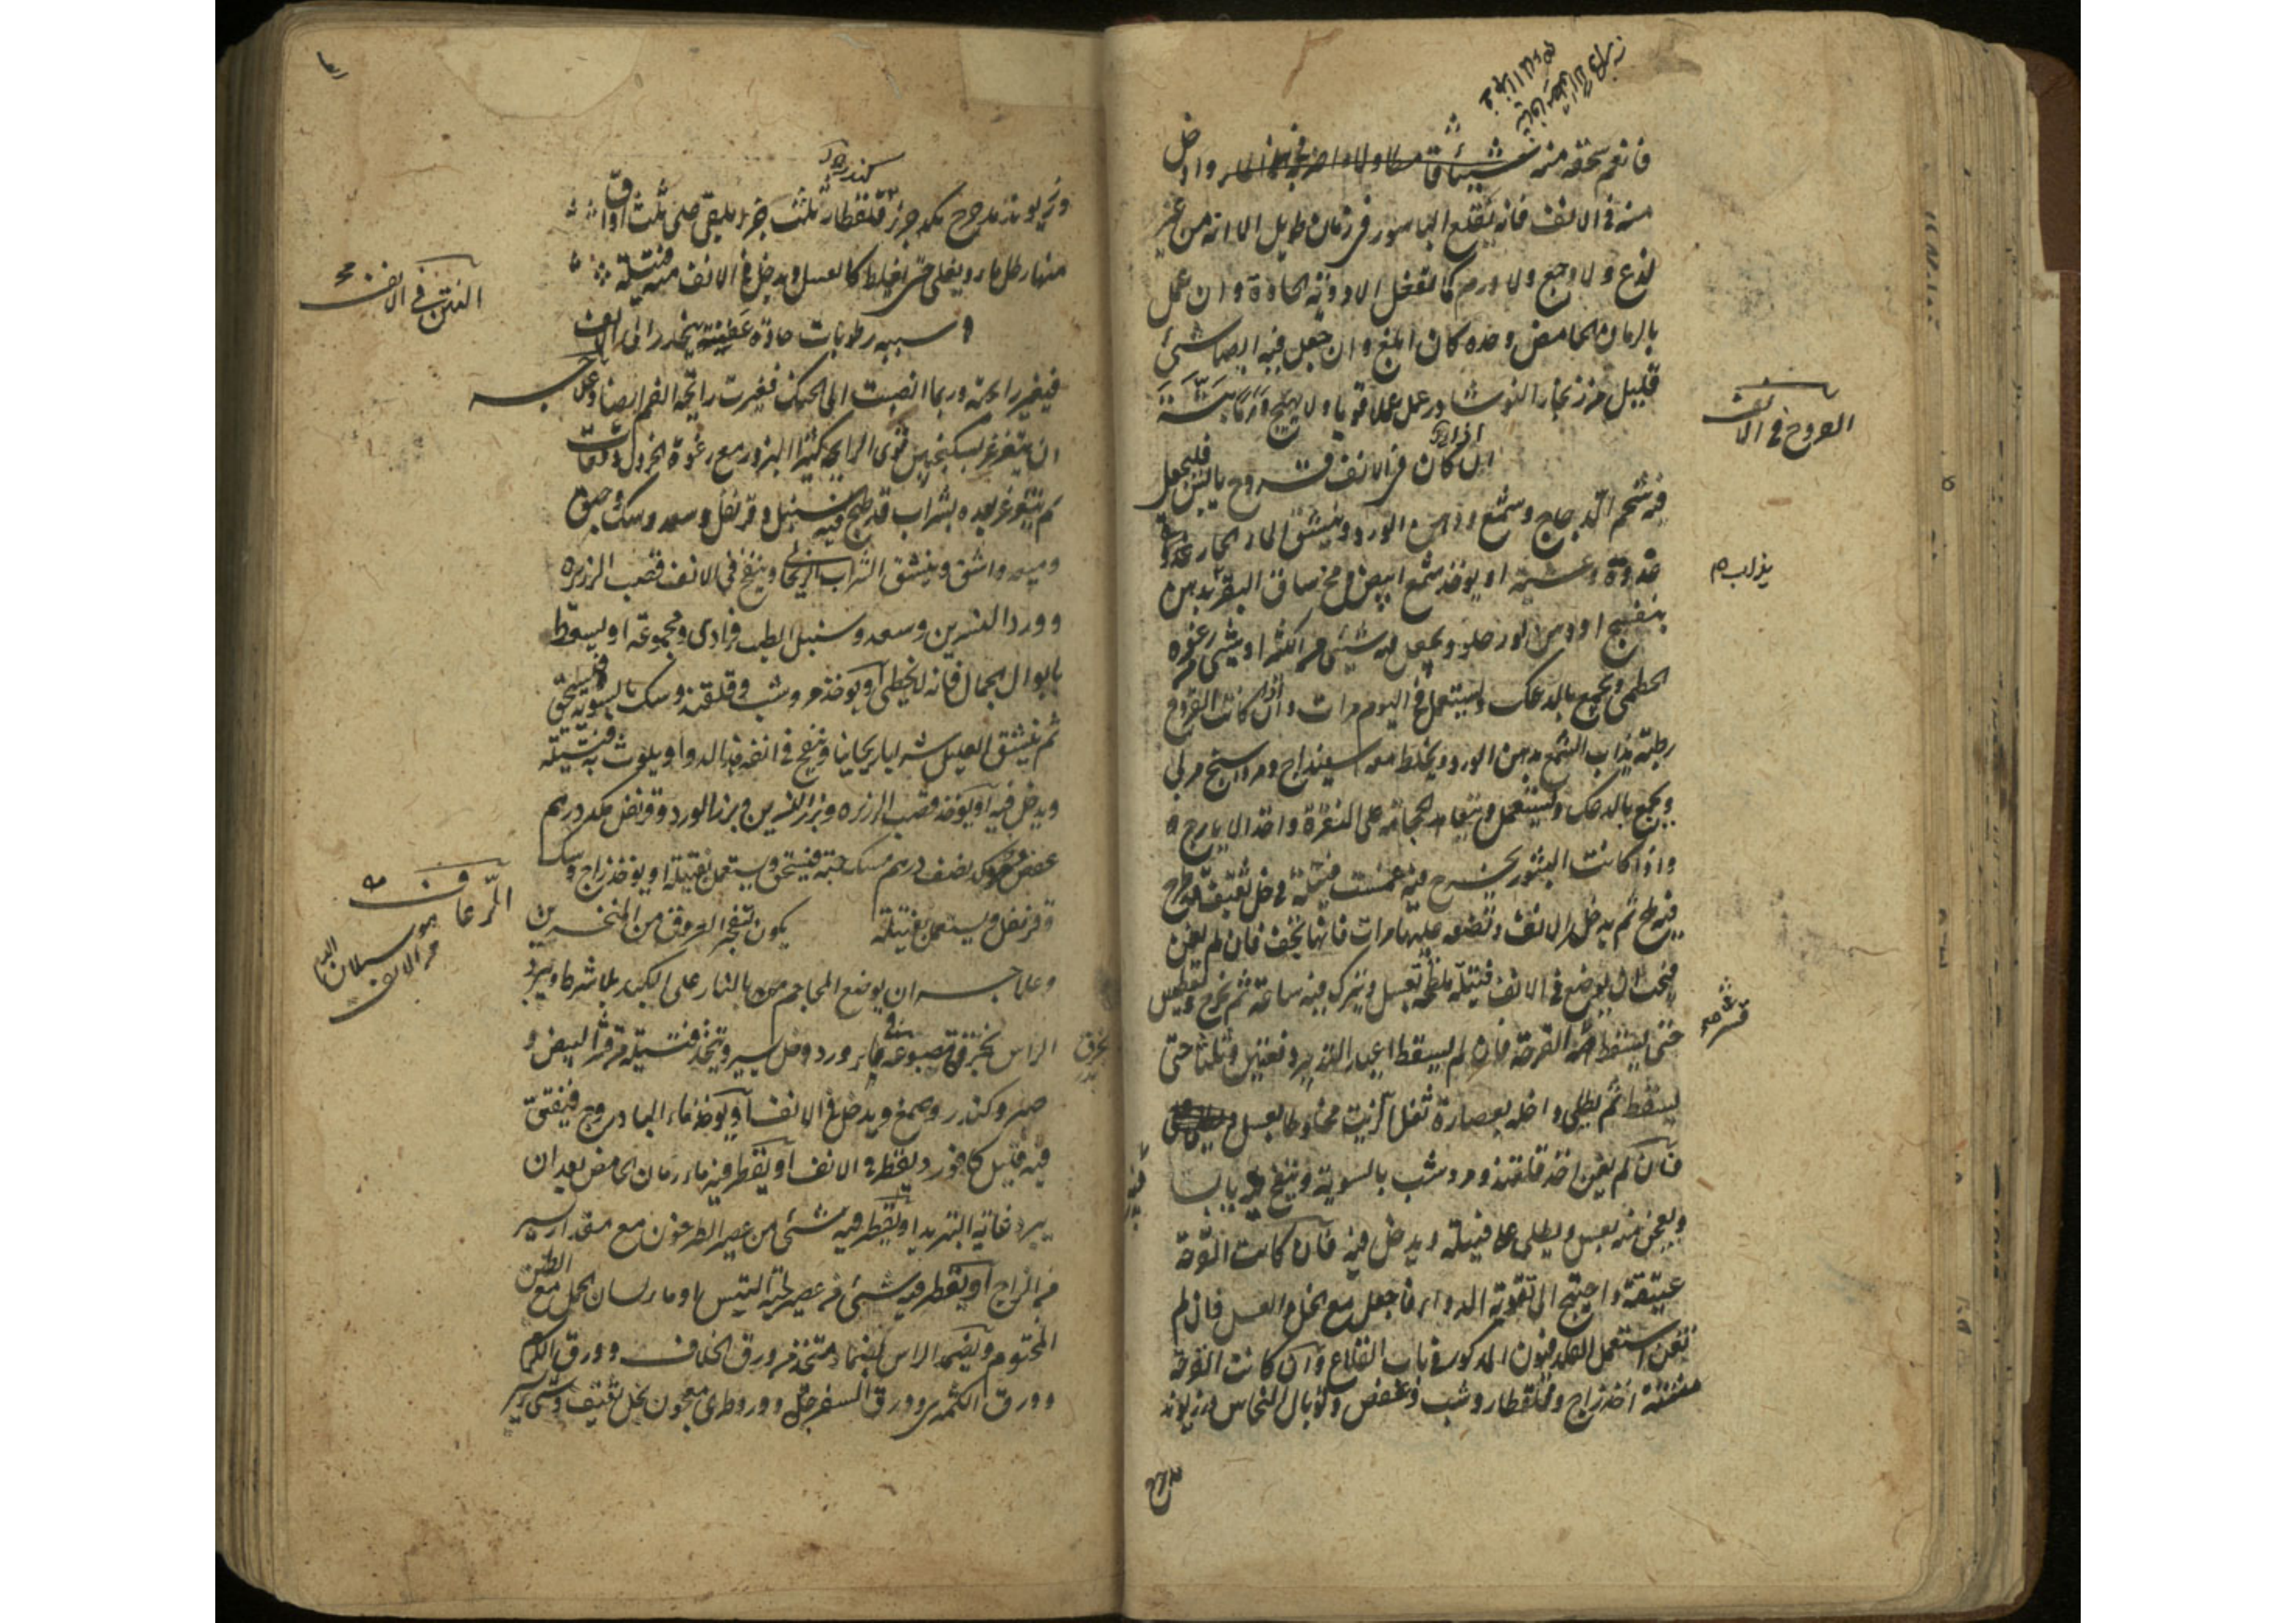 فانعم سحقه منه شيئا وادخل
منه في الانف فانه يقلع الباسور في زمان طويل الا انه من غير
لذع ولا وجع ولا ورم كما تفعل الادوية الحادة وان عمل
بالرمان الحامض وحده كان ابلغ وان جعل فيه ايضا شيء
قليل من زنجار النوشادر عمل عملا قويا ولا يهيج
القروح في الانف
ان كان في الانف قروح يابس فليجعل
فيه شحم الدجاج وشمع ودهن الورد وينشق الماء الحار
غدوة وعشية او يوخذ شمع ابيض ومخ ساق البقر بدهن
بنفسج او دهن لوز حلو ويجعل فيه شيء من الكثيرا او شيء من رغوة
الخطمي ويجمع بالدعك ويستعمل في اليوم مرات وان كانت القروح
رطبة يذاب الشمع بدهن الورد ويخلط معه اسفيداج ومرداسنج مربى
ويجمع بالدعك ويستعمل ويتعاهد الحجامة على النقرة واخذ الايارج
واذا كانت البثور تخرج فيه غمست فتيلة في خل ثقيف
فيه ملح ثم يدخل الانف وتضعه عليها مرات فانها تجف فان لم يغن
فيجب ان يوضع في الانف فتيلة ملطخة بعسل ويترك فيه ساعة ثم يخرج
حتى يسقط القرحة فان لم يسقط اعيد التدبير دفعتين وثلثا حتى
يسقط ثم يطلى داخله بعصارة ثفل الزيت مخلوطا بعسل
فان لم يغن اخذ قلقند ومر وشب بالسوية وينفخ فيه يابسا
ويعجن منه بعسل ويطلى على فتيلة ويدخل فيه فان كانت القرحة
عتيقة واحتيج الى تقوية الدواء فاجعل مع الخل والعسل فان لم
تغن استعمل الفلدفيون المذكور في باب القلاع وان كانت القرحة
متعفنة اخذ زاج وقلقطار وشب وعفص وتوبال النحاس وزريوند
مدحرج من كل جزء قلقطار ثلث جزء يلقى على ثلث اواق
منها رطل ماء ويغلى حتى يغلظ كالعسل ويدخل في الانف منه فتيلة
النتن في الانف
وسببه رطوبات حادة عفنة ينحدر الى الانف
فيغير رائحته وربما انصبت الى الحنك فغيرت رائحة الفم ايضا وعلاجه
ان يتغرغر بسكنجبين قوي الرائحة كثير البزور مع رغوة الخردل وقتا
ثم يتغرغر بعده بشراب قد طبخ فيه سنبل وقرنفل وسعد وسك
وميعه واشق وينشق الشراب الريحاني وينفخ في الانف قصب الزريرة
وورد النسرين وسعد وسنبل الطيب فرادى ومجموعة او يسعط
بابوال الجمال فانه لا يخطي او يوخذ مر وشب وقلقند وسك بالسوية فيسحق
ثم ينشق العليل شرابا ريحانيا وينفخ في انفه هذا الدواء او يلوث به فتيلة
ويدخل فيه او يوخذ قصب الزريرة وبزر النسرين وبزر الورد وقرنفل من كل درهم
عفص نصف درهم مسك حبة فيسحق ويستعمل بفتيلة او يوخذ زاج وسك
وقرنفل ويستعمل بفتيلة
الرعاف
هو سيلان الدم
من الانف
يكون تنفجر العروق من المنخرين
وعلاجه ان يوضع المحاجم بالنار على الكبد بلا شرط ويبرد
الراس بخرق مصبوغة في ماء ورد وخل يسير ويتخذ فتيلة من قشر البيض و
صبر وكندر وصمغ ويدخل في الانف او يوخذ ماء البادروج فيفتق
فيه قليل كافور ويقطر في الانف او يقطر فيه ماء رمان الحامض بعد ان
يبرد غاية التبريد او يقطر فيه شيء من عصير الطرخون مع مقدار يسير
من الزاج او يقطر فيه شيء من عصير لحية التيس او ماء لسان الحمل مع الطين
المختوم ويضمد الراس بضماد متخذ من ورق الخلاف وورق الكرم
وورق الكمثرى وورق السفرجل وورد طري معجون بخل ثقيف وشيء يسير